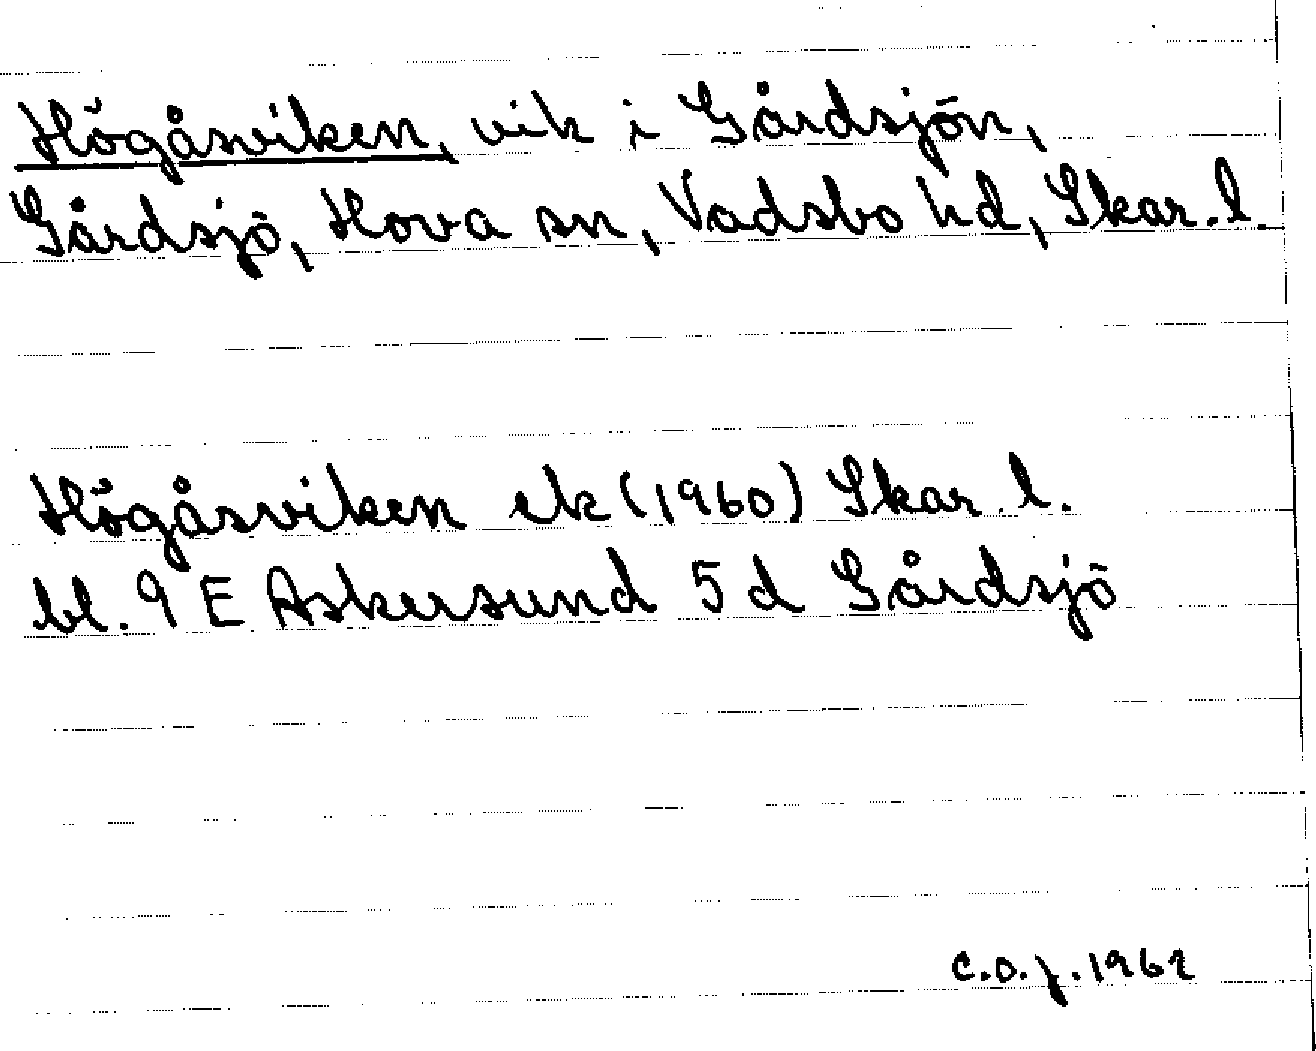 Högåsviken, vik i Gårdsjön,
Gårdsjö, Hova sn, Vadsbo hd, Skar. l.
Högåsviken ek (1960) Skar. l.
bl. 9 E Askersund 5 d Gårdsjö
C.O.J. 1962